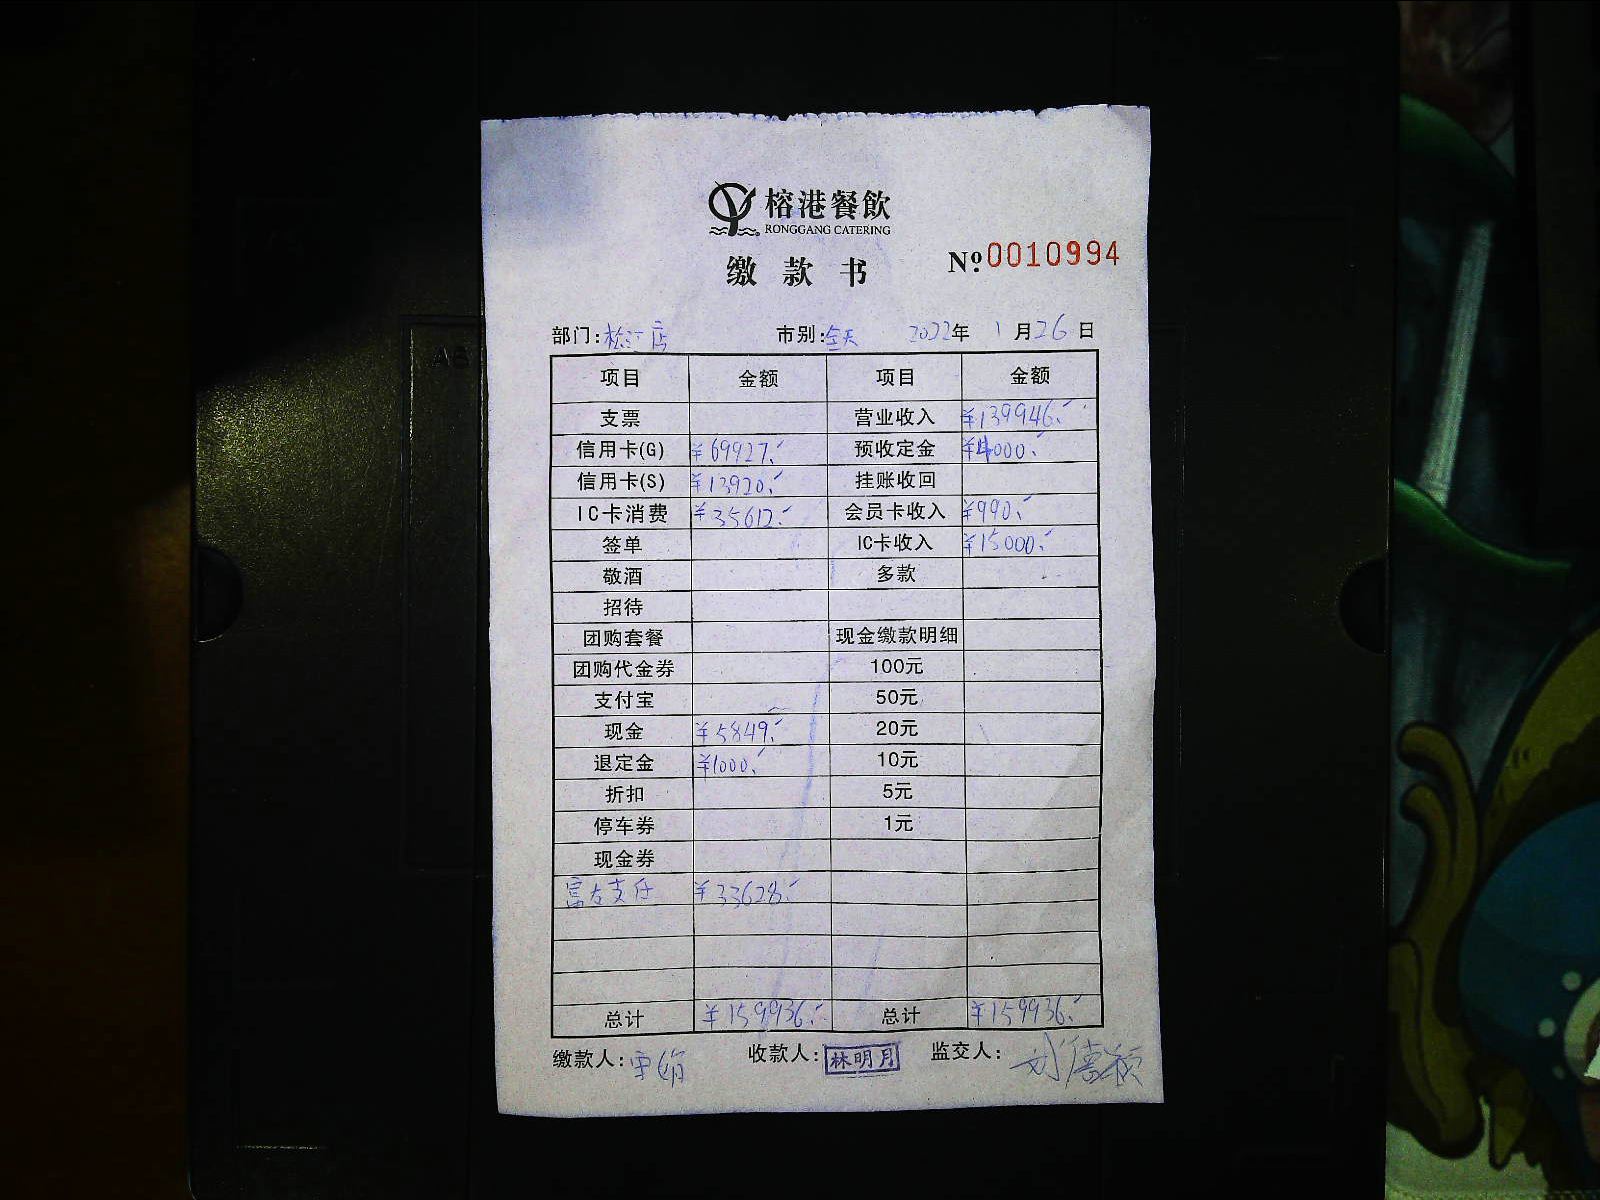 榕港餐飲
RONGGANG CATERING
缴款书 №0010994
部门:松江店 市别:全天 2022年1月26日
项目 金额 项目 金额
支票 营业收入 ¥139946.-
信用卡(G) ¥69927.- 预收定金 ¥4000.-
信用卡(S) ¥13920.- 挂账收回
IC卡消费 ¥35612.- 会员卡收入 ¥990.-
签单 IC卡收入 ¥15000.-
敬酒 多款
招待
团购套餐 现金缴款明细
团购代金券 100元
支付宝 50元
现金 ¥5849.- 20元
退定金 ¥1000.- 10元
折扣 5元
停车券 1元
现金券
富友支付 ¥33628.-
总计 ¥159936.- 总计 ¥159936.-
缴款人: 收款人:林明月 监交人: